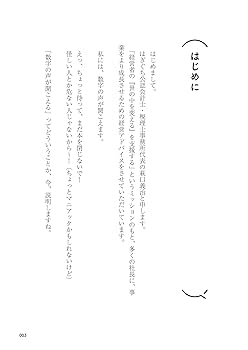 はじめに
はじめまして。
はぎぐち公認会計士・税理士事務所代表の萩口義治と申します。
「経営者の『世の中を変える』を支援する」というミッションのもと、多くの社長に、事
業をより成長させるための経営アドバイスをさせていただいています。
私には、数字の声が聞こえます。
えっ、ちょっと待って、まだ本を閉じないで！
怪しい人とか危ない人じゃないから！（ちょっとマニアックかもしれないけど）
「数字の声が聞こえる」ってどういうことか、今、説明しますね。
003